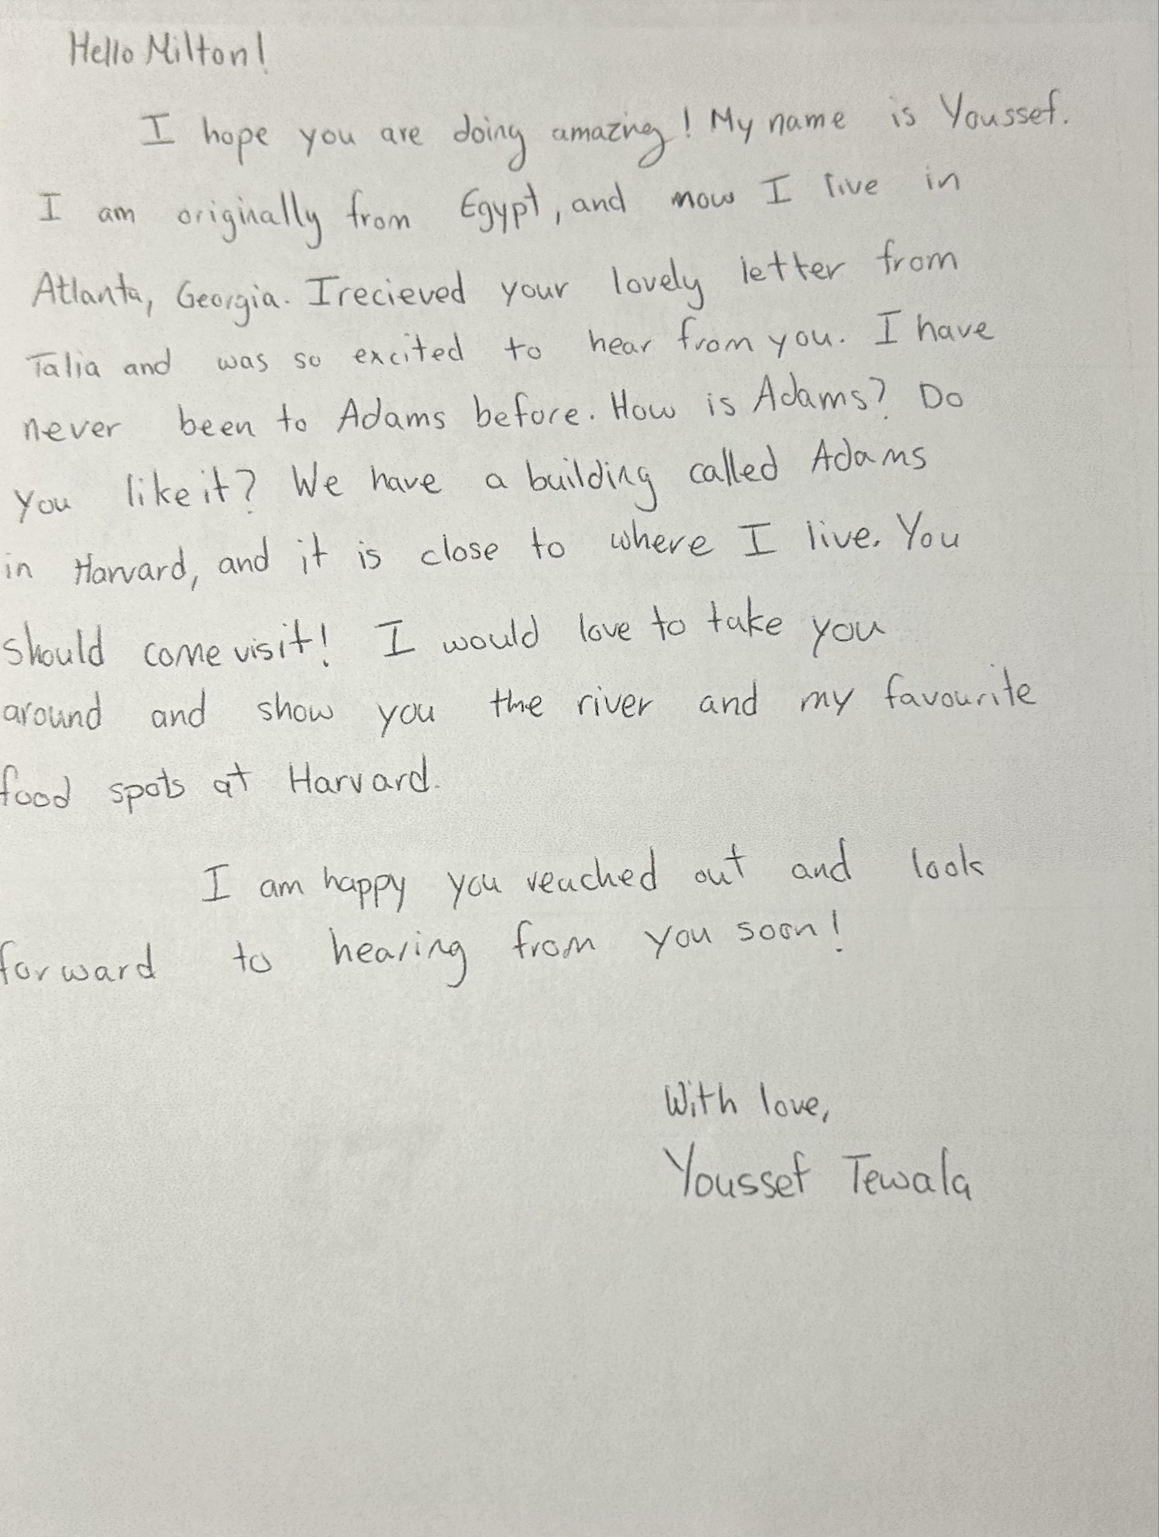 Hello Milton!
I hope you are doing amazing! My name is Youssef.
I am originally from Egypt, and now I live in
Atlanta, Georgia. I recieved your lovely letter from
Talia and was so excited to hear from you. I have
never been to Adams before. How is Adams? Do
you like it? We have a building called Adams
in Harvard, and it is close to where I live. You
should come visit! I would love to take you
around and show you the river and my favourite
food spots at Harvard.
I am happy you reached out and look
forward to hearing from you soon!
With love,
Youssef Tewala